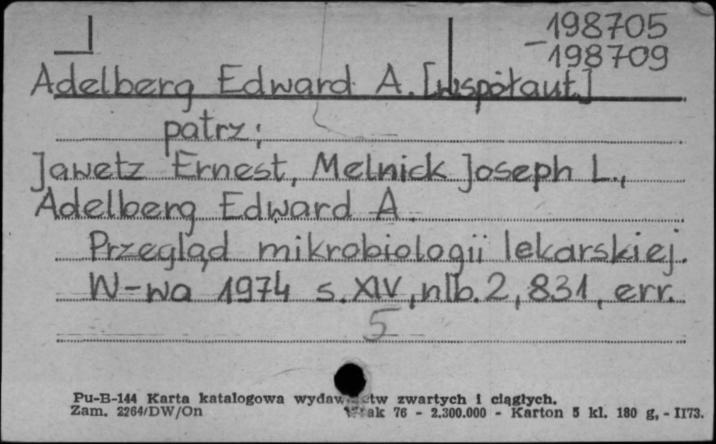 198705
– 198709
Adelberg Edward A. [współaut.]
patrz:
Jawetz Ernest, Melnick Joseph L.,
Adelberg Edward A.
Przegląd mikrobiologii lekarskiej.
W-wa 1974 s. XIV, nlb. 2, 831, err.
5
Pu-B-144 Karta katalogowa wydaw tw zwartych i ciągłych.
Zam. 2264/DW/On ak 76 - 2.300.000 - Karton 5 kl. 180 g, - II73.